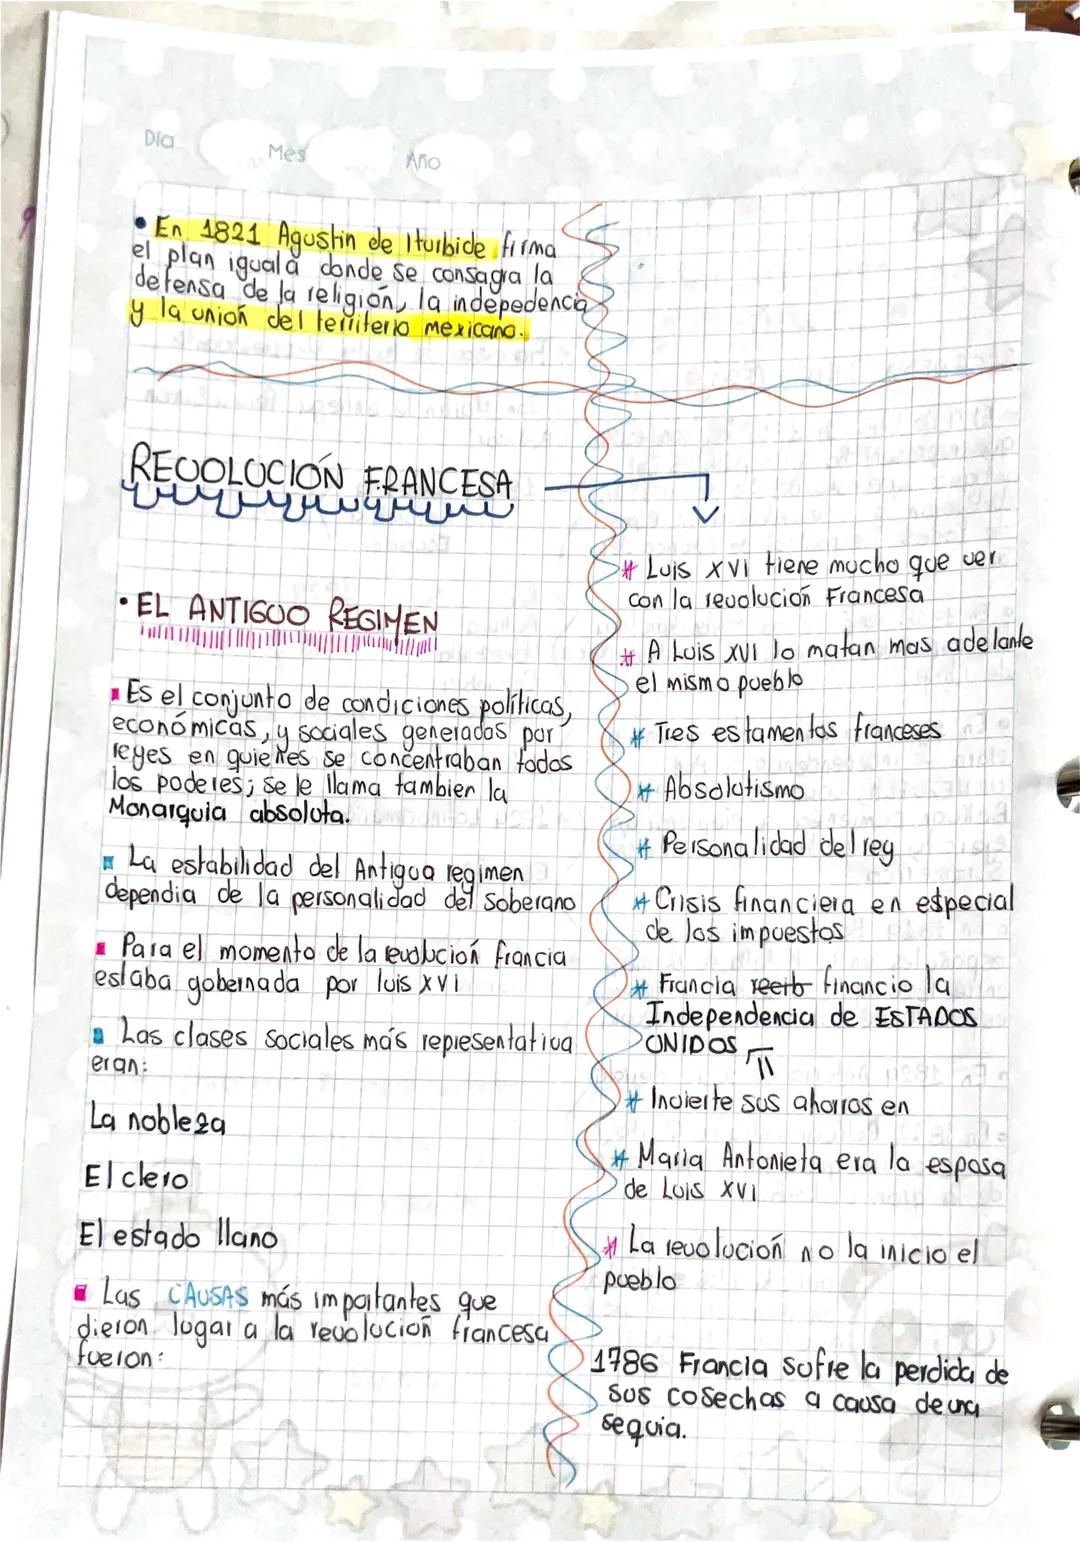 Día Mes Año
• En 1821 Agustin de Iturbide firma
el plan iguala donde se consagra la
defensa de la religión, la indepedencia
y la unión del territerio mexicano.
REVOLUCIÓN FRANCESA
• EL ANTIGUO REGIMEN
Es el conjunto de condiciones políticas,
económicas, y sociales generadas por
reyes en quiénes se concentraban todos
los poderes; se le llama tambien la
Monarquia absoluta.
La estabilidad del Antiguo regimen
dependia de la personalidad del soberano
Para el momento de la revolución francia
estaba gobernada por luis XVI
Las clases sociales más representativa
eran:
La nobleza
El clero
El estado llano
Las CAUSAS más importantes que
dieron lugar a la revolución francesa
fueron:
# Luis XVI tiene mucho que ver
con la revolución Francesa
# A Luis XVI lo matan mas adelante
el mismo pueblo
# Tres estamentos franceses
# Absolutismo
# Personalidad del rey
# Crisis financiera en especial
de los impuestos
# Francia financio la
Independencia de ESTADOS
UNIDOS
# Invierte sus ahorros en
# Maria Antonieta era la esposa
de Luis XVI
# La revolución no la inicio el
pueblo
1786 Francia sufre la perdida de
sus cosechas a causa de una
sequia.